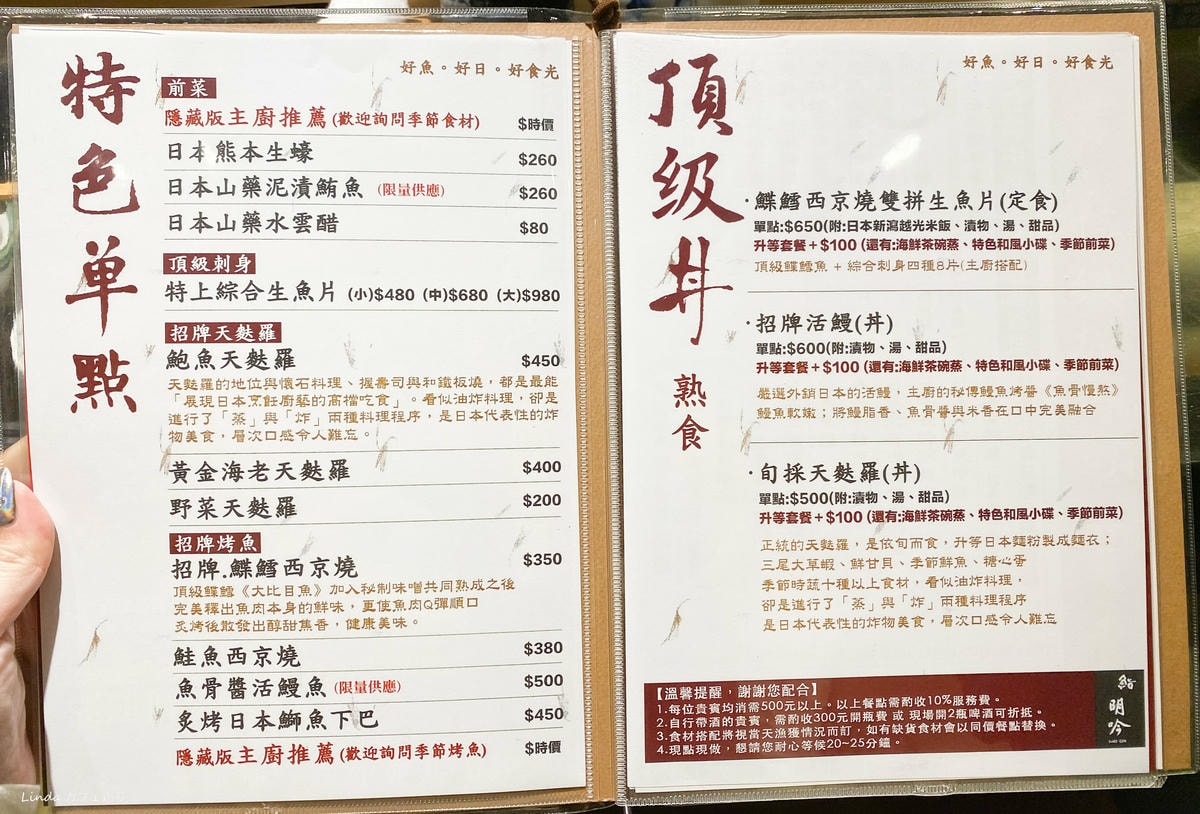 特色单點
好魚。好日。好食光
前菜
隱藏版主廚推薦(歡迎詢問季節食材) $時價
日本熊本生蠔 $260
日本山藥泥漬鮪魚 (限量供應) $260
日本山藥水雲醋 $80
頂級刺身
特上綜合生魚片 (小)$480 (中)$680 (大)$980
招牌天麩羅
鮑魚天麩羅 $450
天麩羅的地位與懷石料理、握壽司與和鐵板燒，都是最能
「展現日本烹飪廚藝的高檔吃食」。看似油炸料理，卻是
進行了「蒸」與「炸」兩種料理程序，是日本代表性的炸
物美食，層次口感令人難忘。
黃金海老天麩羅 $400
野菜天麩羅 $200
招牌烤魚
招牌.鰈鱈西京燒 $350
頂級鰈鱈《大比目魚》加入秘制味噌共同熟成之後
完美釋出魚肉本身的鮮味，更使魚肉Q彈順口
炙烤後散發出醇甜焦香，健康美味。
鮭魚西京燒 $380
魚骨醬活鰻魚 (限量供應) $500
炙烤日本鰤魚下巴 $450
隱藏版主廚推薦(歡迎詢問季節烤魚) $時價
頂级丼
熟食
好魚。好日。好食光
·鰈鱈西京燒雙拼生魚片(定食)
單點:$650(附:日本新潟越光米飯、漬物、湯、甜品)
升等套餐+$100 (還有:海鮮茶碗蒸、特色和風小碟、季節前菜)
頂級鰈鱈魚 + 綜合刺身四種8片(主廚搭配)
·招牌活鰻(丼)
單點:$600(附:漬物、湯、甜品)
升等套餐+$100 (還有:海鮮茶碗蒸、特色和風小碟、季節前菜)
嚴選外銷日本的活鰻，主廚的秘傳鰻魚烤醬《魚骨慢熬》
鰻魚軟嫩；將鰻脂香、魚骨醬與米香在口中完美融合
·旬採天麩羅(丼)
單點:$500(附:漬物、湯、甜品)
升等套餐+$100 (還有:海鮮茶碗蒸、特色和風小碟、季節前菜)
正統的天麩羅，是依旬而食，升等日本麵粉製成麵衣；
三尾大草蝦、鮮甘貝、季節鮮魚、糖心蛋
季節時蔬十種以上食材，看似油炸料理，
卻是進行了「蒸」與「炸」兩種料理程序
是日本代表性的炸物美食，層次口感令人難忘
【溫馨提醒，謝謝您配合】
1.每位貴賓均消需500元以上。以上餐點需酌收10%服務費。
2.自行帶酒的貴賓，需酌收300元開瓶費 或 現場開2瓶啤酒可折抵。
3.食材搭配將視當天漁獲情況而訂，如有缺貨食材會以同價餐點替換。
4.現點現做，懇請您耐心等候20~25分鐘。
鮨
明吟
Linda